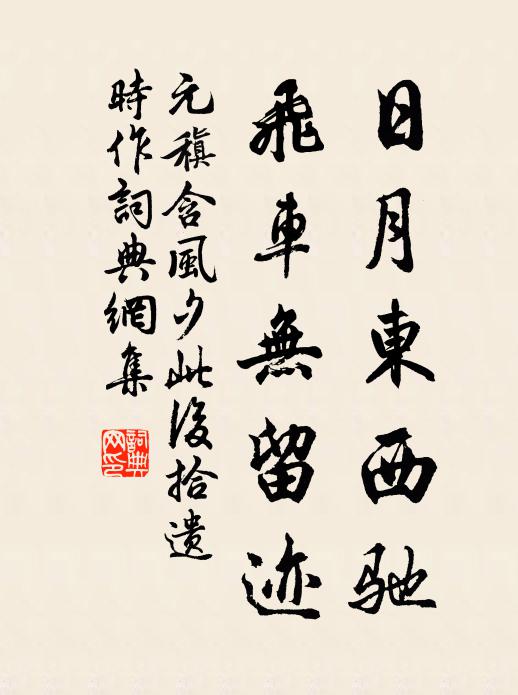 日月東西馳
飛車無留迹
元稹含風夕此後拾遺
時作詞典網集
詞典网印